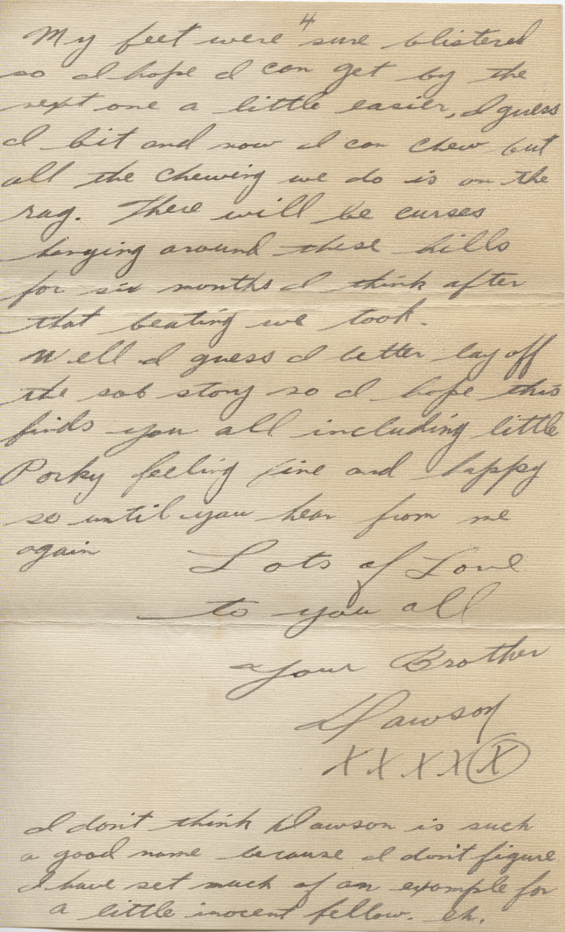 4
My feet were sure blistered
so I hope I can get by the
next one a little easier, I guess
I bit and now I can chew but
all the chewing we do is on the
rag. There will be curses
hanging around these hills
for six months I think after
that beating we took.
Well I guess I better lay off
the sob story so I hope this
finds you all including little
Porky feeling fine and happy
so until you hear from me
again Lots of Love
to you all
Your Brother
Dawson
X X X X X
I don't think Dawson is such
a good name because I don't figure
I have set much of an example for
a little inocent fellow. eh.